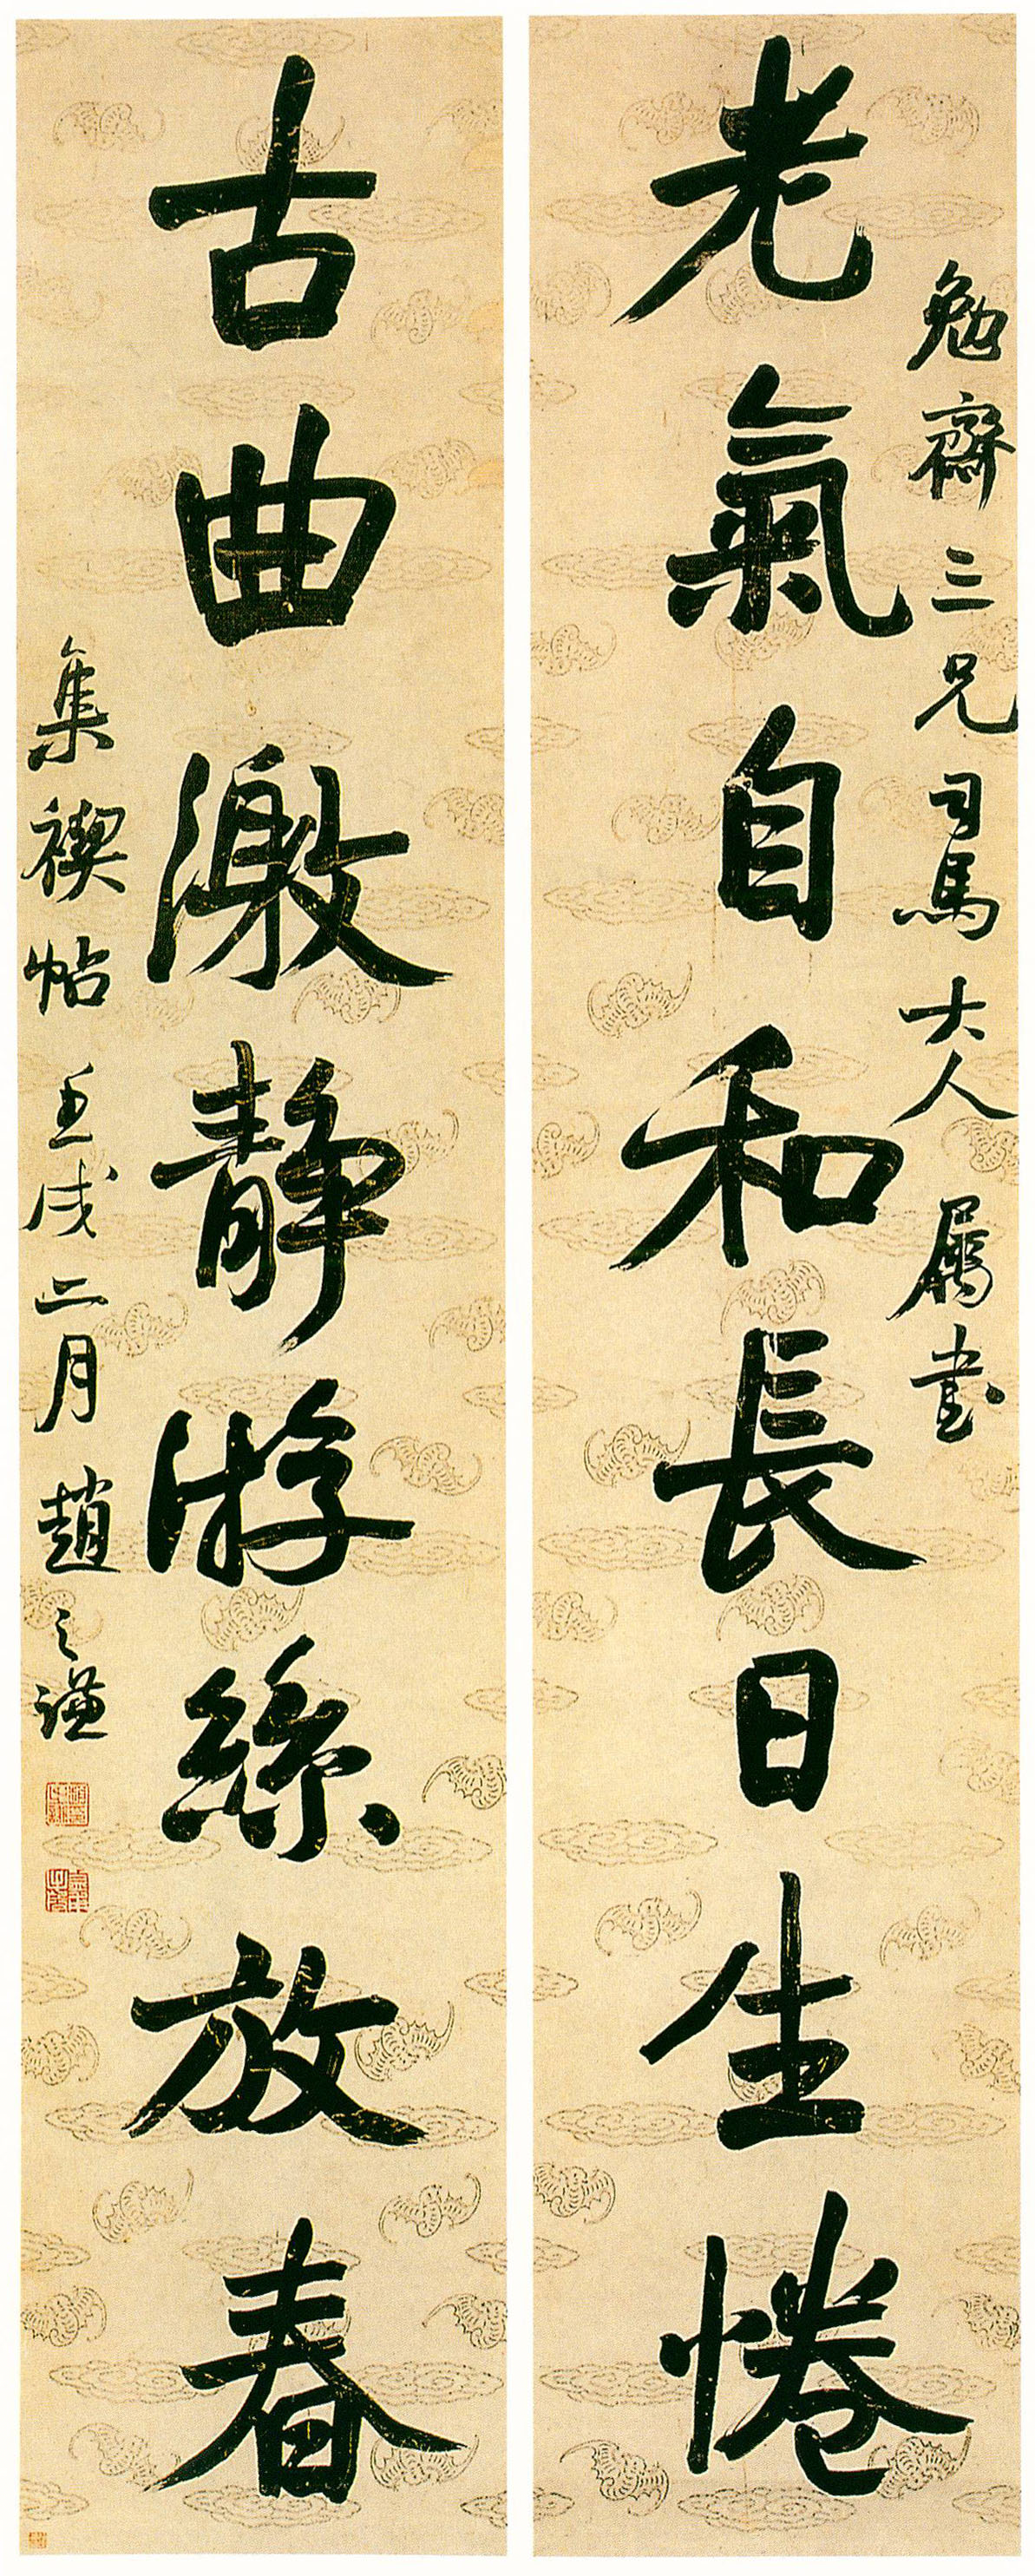 勉齋三兄司馬大人屬書
老氣自和長日生惓
古曲激靜游絲放春
集禊帖壬戌二月趙之謙